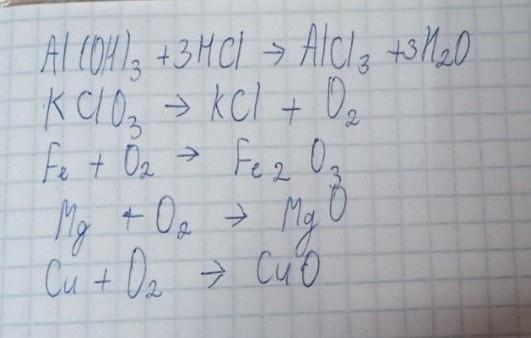 Al(OH)₃ + 3HCl → AlCl₃ + 3H₂O
KClO₃ → KCl + O₂
Fe + O₂ → Fe₂O₃
Mg + O₂ → MgO
Cu + O₂ → CuO